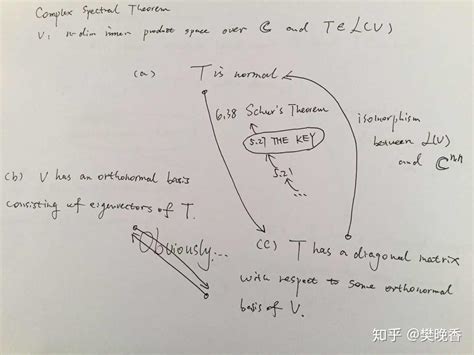 Complex Spectral Theorem
V: n-dim inner product space over C and T∈L(V)
(a) T is normal
6.38 Schur's Theorem
5.27 THE KEY
5.21
...
isomorphism
between L(V)
and C^n,n
(b) V has an orthonormal basis
consisting of eigenvectors of T.
Obviously...
(c) T has a diagonal matrix
with respect to some orthonormal
basis of V.
知乎 @樊晚香